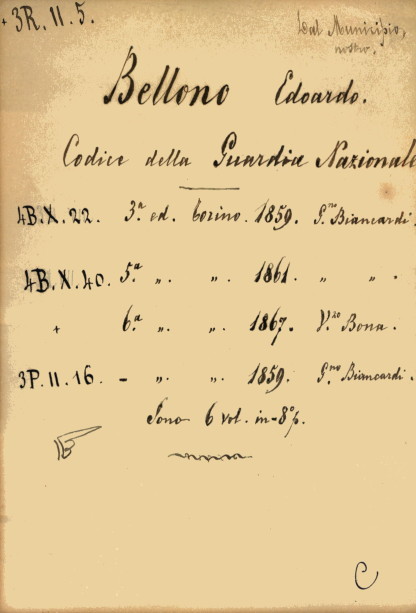 + 3R. II. 5.
Dal Municipio,
nostro.
Bellono Edoardo.
Codice della Guardia Nazionale
4B.X.22. 3.ª ed. Torino. 1859. G.mo Biancardi.
4B.X.40. 5.ª „. „. 1861. „ „.
+ 6.ª „. „. 1867. V.zo Bona.
3P.II.16. - „. „. 1859. G.mo Biancardi.
Sono 6 vol. in-8º p.
C